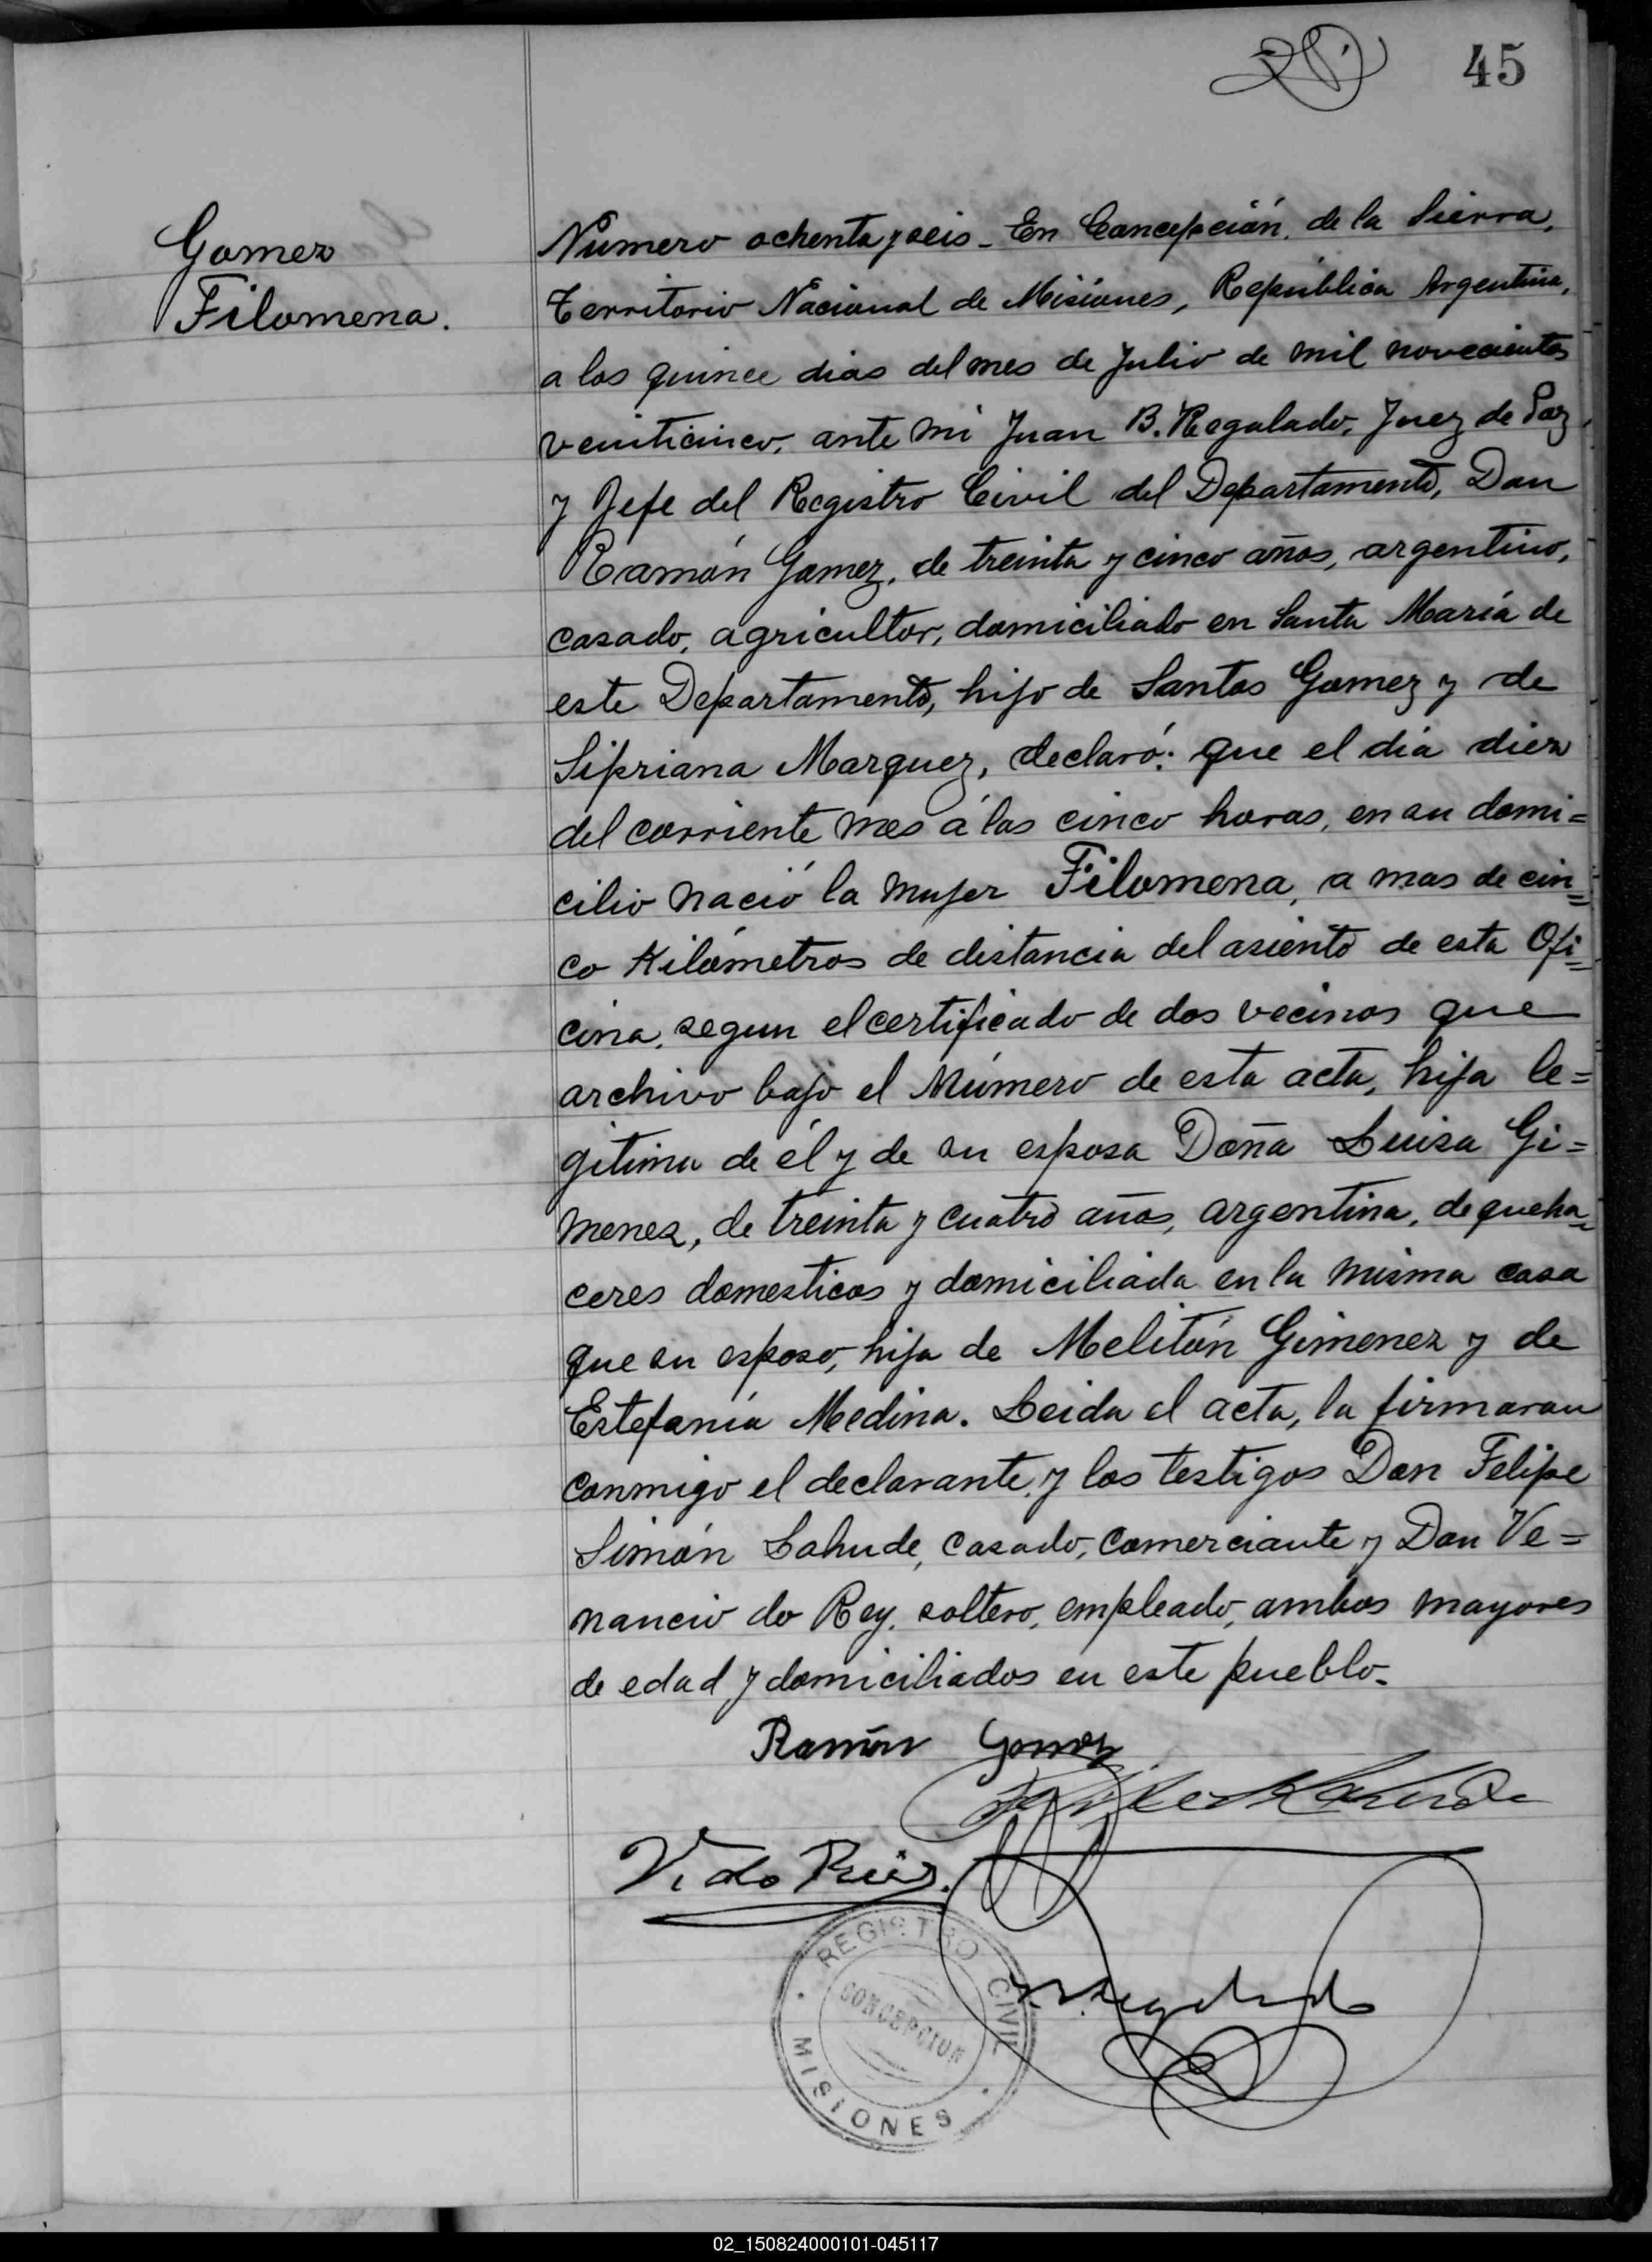 45
Gomez
Filomena.
Número ochenta y seis - En Concepción de la Sierra,
Territorio Nacional de Misiones, República Argentina,
a los quince dias del mes de Julio de mil novecientos
veinticinco, ante mi Juan B. Regalado, Juez de Paz
y Jefe del Registro Civil del Departamento, Don
Ramón Gomez, de treinta y cinco años, argentino,
casado, agricultor, domiciliado en Santa María de
este Departamento, hijo de Santos Gomez y de
Sipriana Marquez, declaró: que el dia diez
del corriente mes á las cinco horas, en su domi=
cilio nació la mujer Filomena, a mas de cin=
co Kilómetros de distancia del asiento de esta Ofi=
cina, segun el certificado de dos vecinos que
archivo bajo el Número de esta acta, hija le=
gitima de él y de su esposa Doña Luisa Gi=
menez, de treinta y cuatro años, argentina, de queha=
ceres domesticos y domiciliada en la misma casa
que su esposo, hija de Melitón Gimenez y de
Estefanía Medina. Leida el acta, la firmaron
conmigo el declarante y los testigos Don Felipe
Simón Lahude, casado, comerciante y Don Ve=
nancio do Rey, soltero, empleado, ambos mayores
de edad y domiciliados en este pueblo-
Ramón Gomez
V. do
Regalado
REGISTRO CIVIL
CONCEPCION
MISIONES
02_150824000101-045117